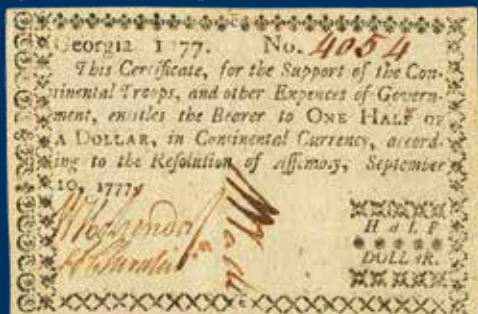 Georgia 1777. No. 4054
This Certificate, for the Support of the Con-
tinental Troops, and other Expences of Govern-
ment, entitles the Bearer to ONE HALF OF
A DOLLAR, in Continental Currency, accord-
ing to the Resolution of Assembly, September
10, 1777.
HALF
DOLLAR.